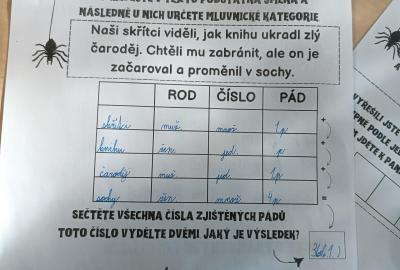 PODSTATNÁ JMÉNA A
NÁSLEDNĚ U NICH URČETE MLUVNICKÉ KATEGORIE
Naši skřítci viděli, jak knihu ukradl zlý
čaroděj. Chtěli mu zabránit, ale on je
začaroval a proměnil v sochy.
ROD ČÍSLO PÁD
skřítci muž. množ. 1p +
knihu žen. jed. p +
čaroděj muž. jed. 1p +
sochy žen. množ. 4p =
SEČTĚTE VŠECHNA ČÍSLA ZJIŠTĚNÝCH PÁDŮ
TOTO ČÍSLO VYDĚLTE DVĚMI JAKÝ JE VÝSLEDEK?
VYŘEŠILI JSTE
PODLE JE
JDĚTE K PAN